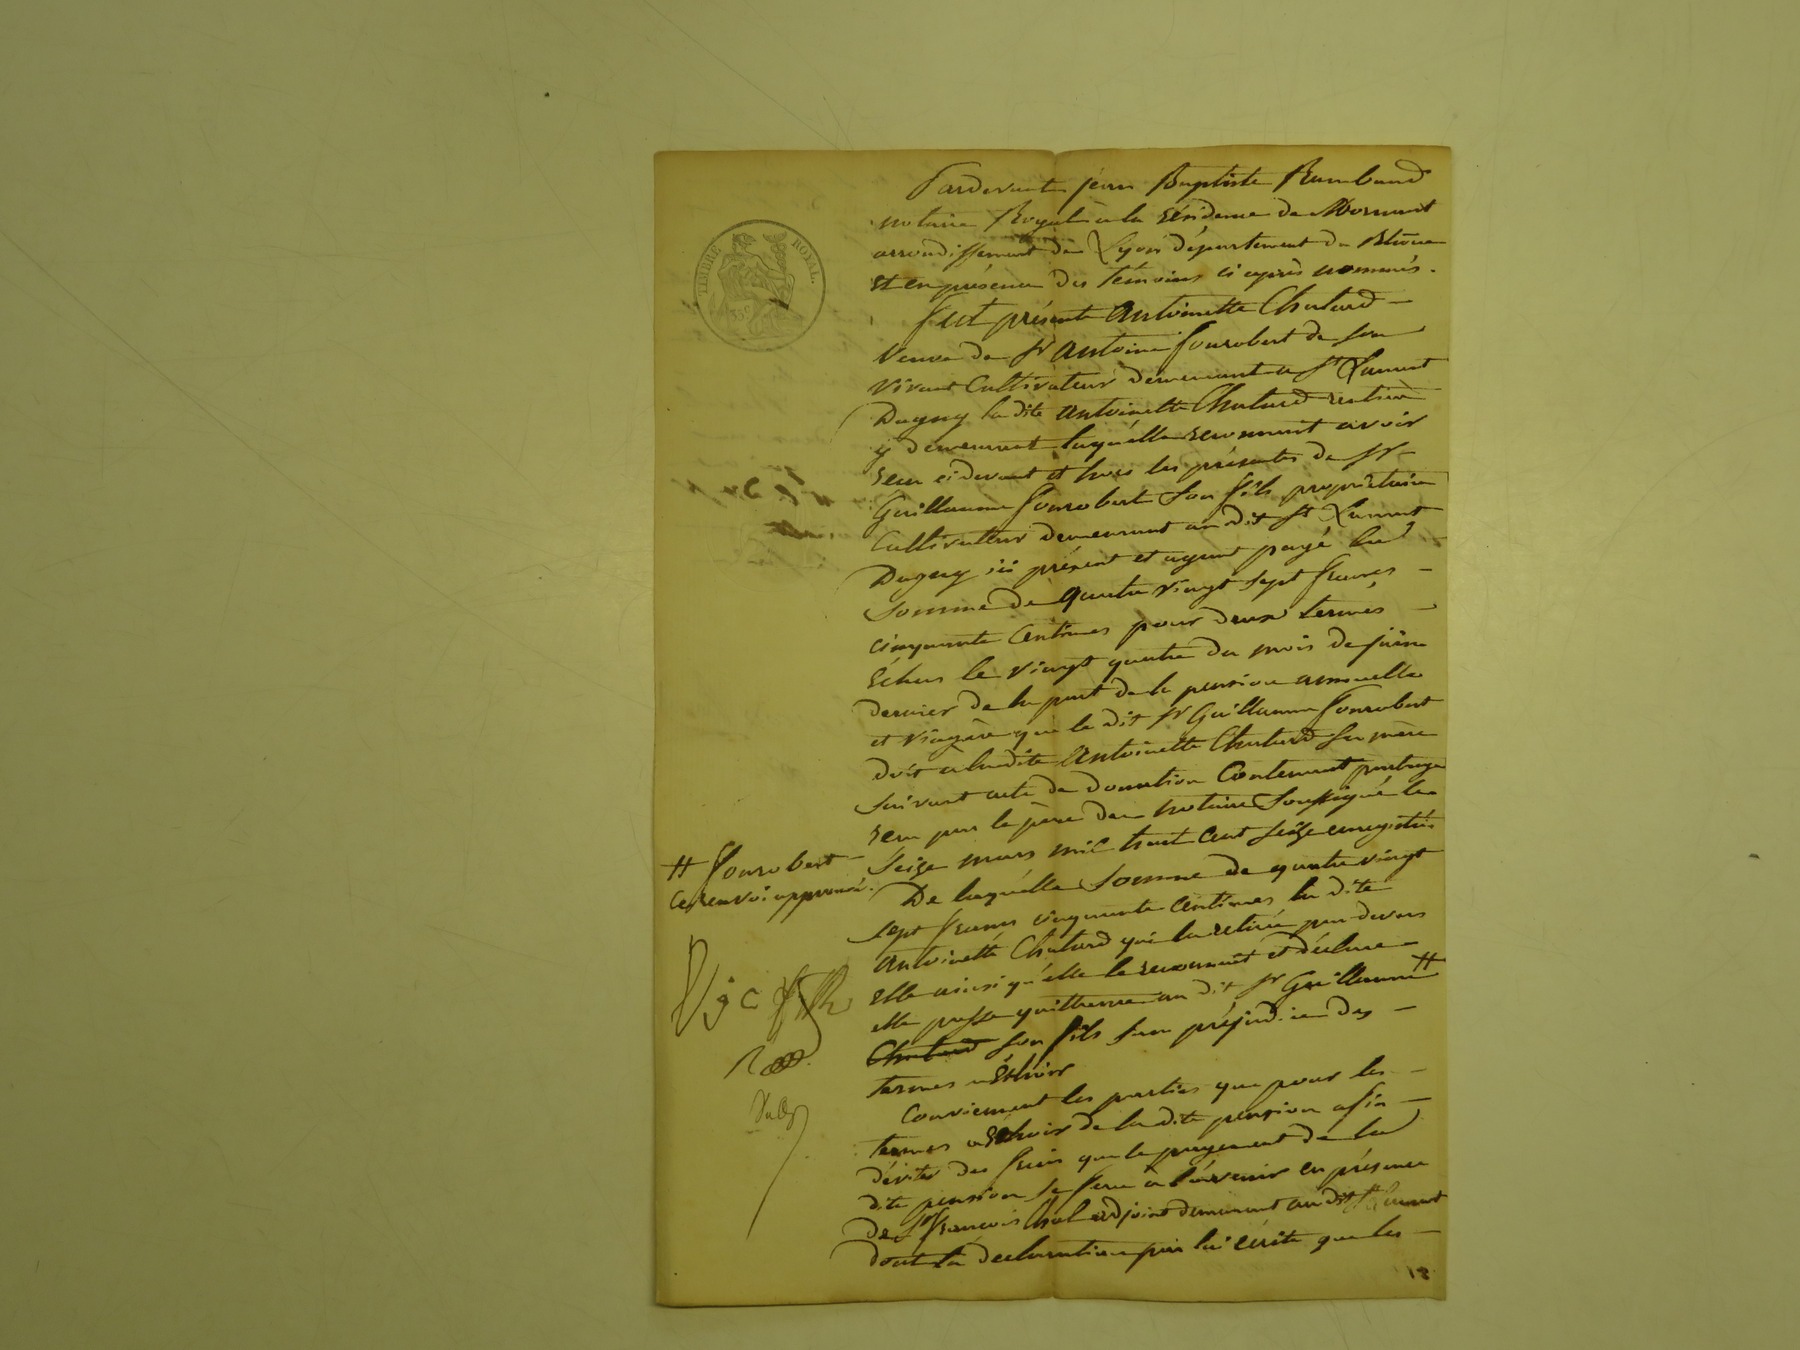 TIMBRE ROYAL.
35c
Pardevant jean Baptiste Rambaud
notaire Royal à la résidence de Mornant
arrondissement de Lyon département du Rhône
et en présence des témoins ci après nommés.
fut présente Antoinette Chatard
Veuve de Sr Antoine fonrobert de son
vivant Cultivateur demeurant a St Laurent
Dagny la dite Antoinette Chatard rentière
y demeurant laquelle reconnait avoir
reçu ci devant et hors les présentes de Sr
Guillaume fonrobert son fils propriétaire
Cultivateur demeurant au dit St Laurent
Dagny ici présent et ayant payé la
somme de quatre vingt sept francs
cinquante Centimes pour deux termes
échus le vingt quatre du mois de juin
dernier de la part de la pension annuelle
et viagère que le dit Sr Guillaume fonrobert
doit a la dite Antoinette Chatard sa mère
suivant acte de donation Contenant partage
reçu par le père du notaire soussigné le
seize mars mil huit Cent seize enregistré
De laquelle somme de quatre vingt
sept francs cinquante Centimes la dite
Antoinette Chatard qui la retiré par devers
elle ainsi qu'elle le reconnait et déclare
elle passe quittance au dit Sr Guillaume #
Chatard son fils sans préjudice des
termes a Echoir
Conviennent les parties que pour les
termes a Echoir de la dite pension afin
déviter des frais que le payement de la
dite pension se fera à l'avenir en présence
de Sr françois Chol adjoint demeurant au dit St Laurent
dont la déclaration par lui écrite que les
# fonrobert
Ce renvoi approuvé.